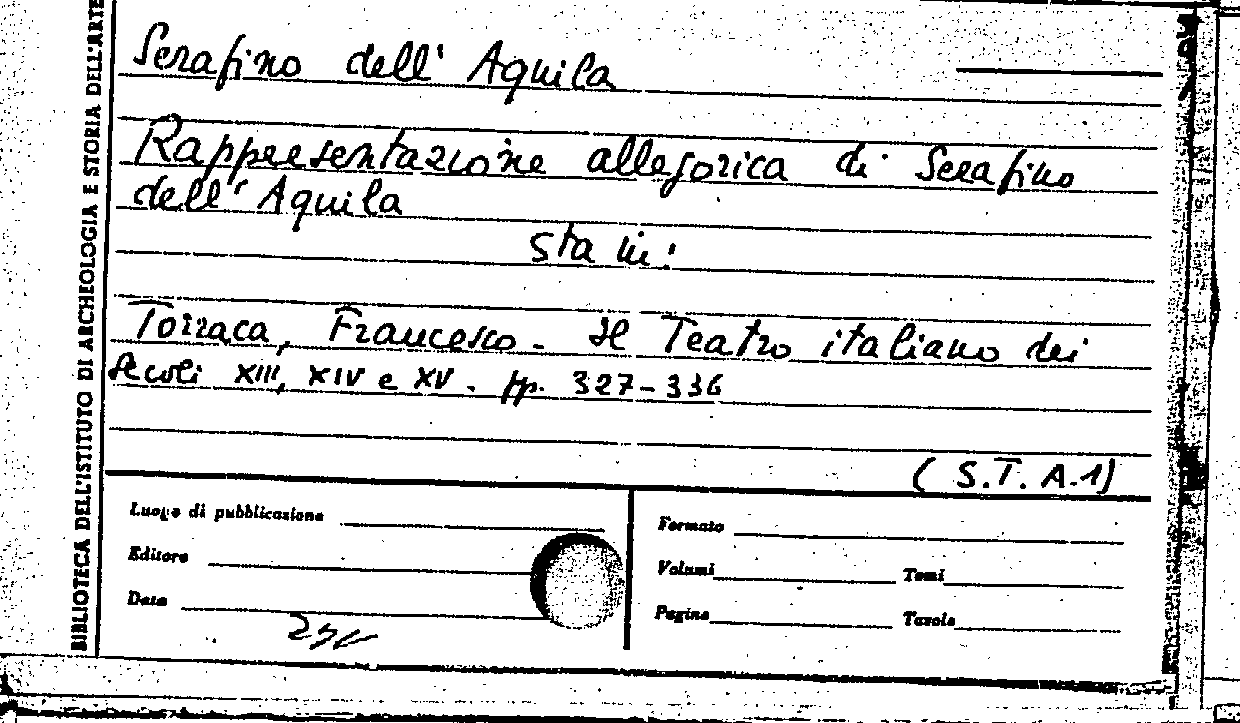 BIBLIOTECA DELL'ISTITUTO DI ARCHEOLOGIA E STORIA DELL'ARTE
Serafino dell' Aquila
Rappresentazione allegorica di Serafino
dell' Aquila
sta in:
Torraca, Francesco - Il Teatro italiano dei
Secoli XIII, XIV e XV - pp. 327-336
(S.T. A.1)
Luogo di pubblicazione
Editore
Data
Formato
Volumi Tomi
Pagine Tavole